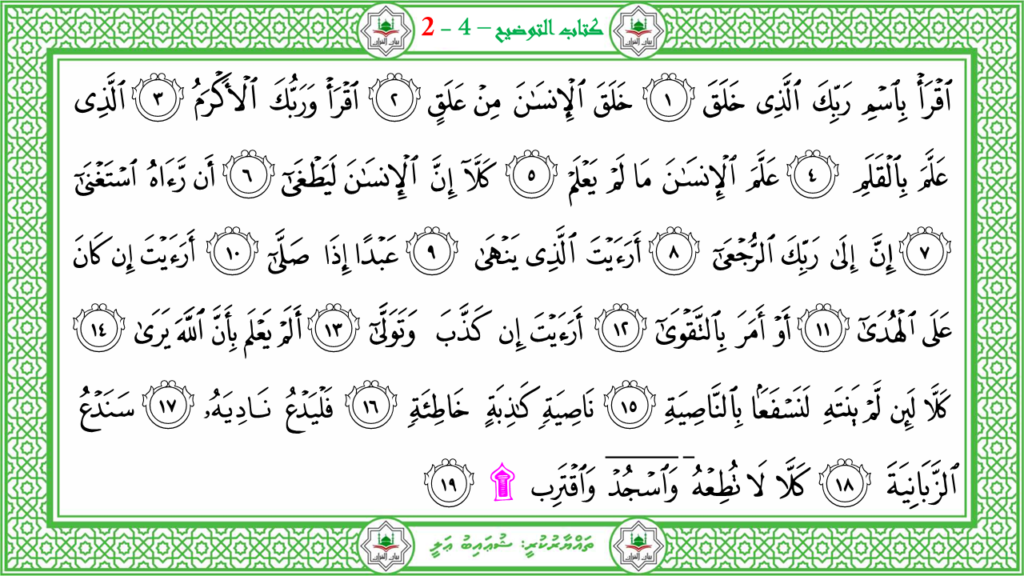 كتاب التوضيح – 4 - 2
ٱقْرَأْ بِٱسْمِ رَبِّكَ ٱلَّذِى خَلَقَ ١ خَلَقَ ٱلْإِنسَـٰنَ مِنْ عَلَقٍ ٢ ٱقْرَأْ وَرَبُّكَ ٱلْأَكْرَمُ ٣ ٱلَّذِى
عَلَّمَ بِٱلْقَلَمِ ٤ عَلَّمَ ٱلْإِنسَـٰنَ مَا لَمْ يَعْلَمْ ٥ كَلَّآ إِنَّ ٱلْإِنسَـٰنَ لَيَطْغَىٰٓ ٦ أَن رَّءَاهُ ٱسْتَغْنَىٰٓ
٧ إِنَّ إِلَىٰ رَبِّكَ ٱلرُّجْعَىٰٓ ٨ أَرَءَيْتَ ٱلَّذِى يَنْهَىٰ ٩ عَبْدًا إِذَا صَلَّىٰٓ ١٠ أَرَءَيْتَ إِن كَانَ
عَلَى ٱلْهُدَىٰٓ ١١ أَوْ أَمَرَ بِٱلتَّقْوَىٰٓ ١٢ أَرَءَيْتَ إِن كَذَّبَ وَتَوَلَّىٰٓ ١٣ أَلَمْ يَعْلَم بِأَنَّ ٱللَّهَ يَرَىٰ ١٤
كَلَّا لَئِن لَّمْ يَنتَهِ لَنَسْفَعًۢا بِٱلنَّاصِيَةِ ١٥ نَاصِيَةٍ كَـٰذِبَةٍ خَاطِئَةٍ ١٦ فَلْيَدْعُ نَادِيَهُۥ ١٧ سَنَدْعُ
ٱلزَّبَانِيَةَ ١٨ كَلَّا لَا تُطِعْهُ وَٱسْجُدْ وَٱقْتَرِب ۩ ١٩
ތައްޔާރުކުރީ: ޝުޢައިބު ޢަލީ